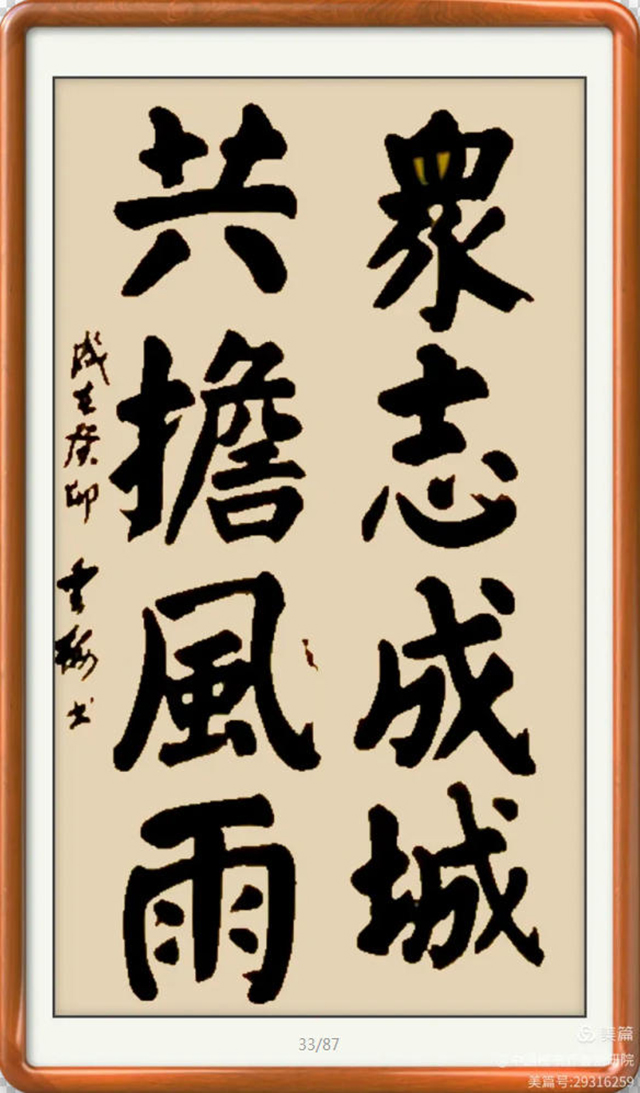 眾志成城
共擔風雨
歲在癸卯
書
33/87
美篇
美篇号:29316259